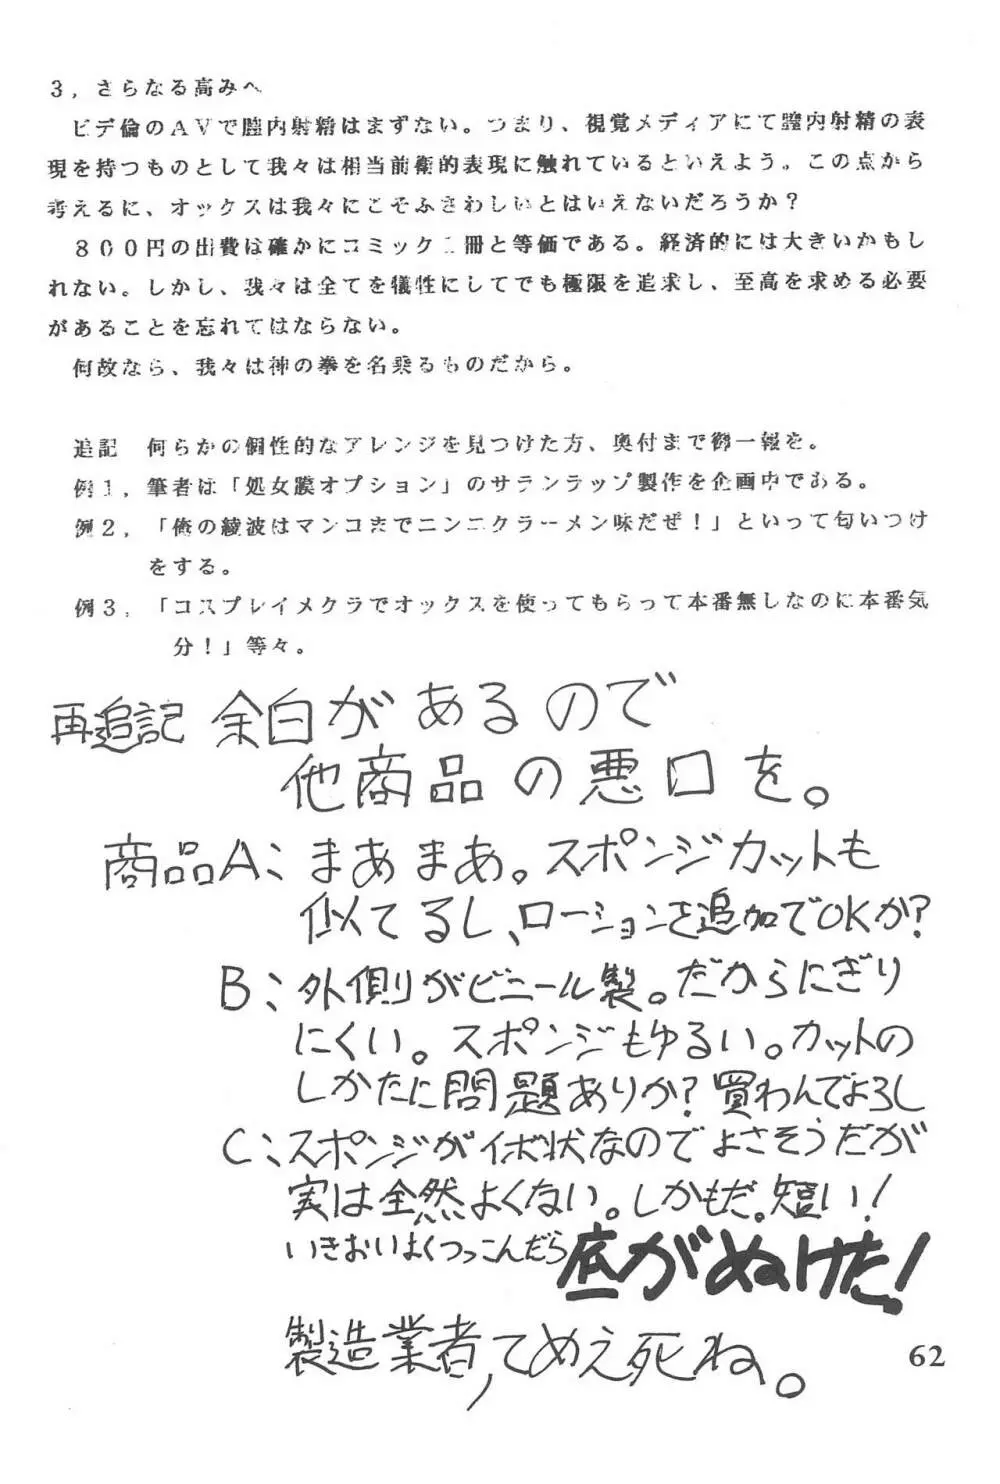 3，さらなる高みへ
ビデ倫のAVで膣内射精はまずない。つまり、視覚メディアにて膣内射精の表
現を持つものとして我々は相当前衛的表現に触れているといえよう。この点から
考えるに、オックスは我々にこそふさわしいとはいえないだろうか？
800円の出費は確かにコミック二冊と等価である。経済的には大きいかもし
れない。しかし、我々は全てを犠牲にしてでも極限を追求し、至高を求める必要
があることを忘れてはならない。
何故なら、我々は神の拳を名乗るものだから。
追記　何らかの個性的なアレンジを見つけた方、奥付まで御一報を。
例1，筆者は「処女膜オプション」のサランラップ製作を企画中である。
例2，「俺の綾波はマンコまでニンニクラーメン味だぜ！」といって匂いつけ
をする。
例3，「コスプレイメクラでオックスを使ってもらって本番無しなのに本番気
分！」等々。
再追記 余白があるので
他商品の悪口を。
商品A：まあまあ。スポンジカットも
似てるし、ローションを追加でOKか?
B：外側がビニール製。だからにぎり
にくい。スポンジもゆるい。カットの
しかたに問題ありか？買わんでよろし
C：スポンジがイボ状なのでよさそうだが
実は全然よくない。しかもだ。短い！
いきおいよくつっこんだら底がぬけた！
製造業者，てめえ死ね。
62